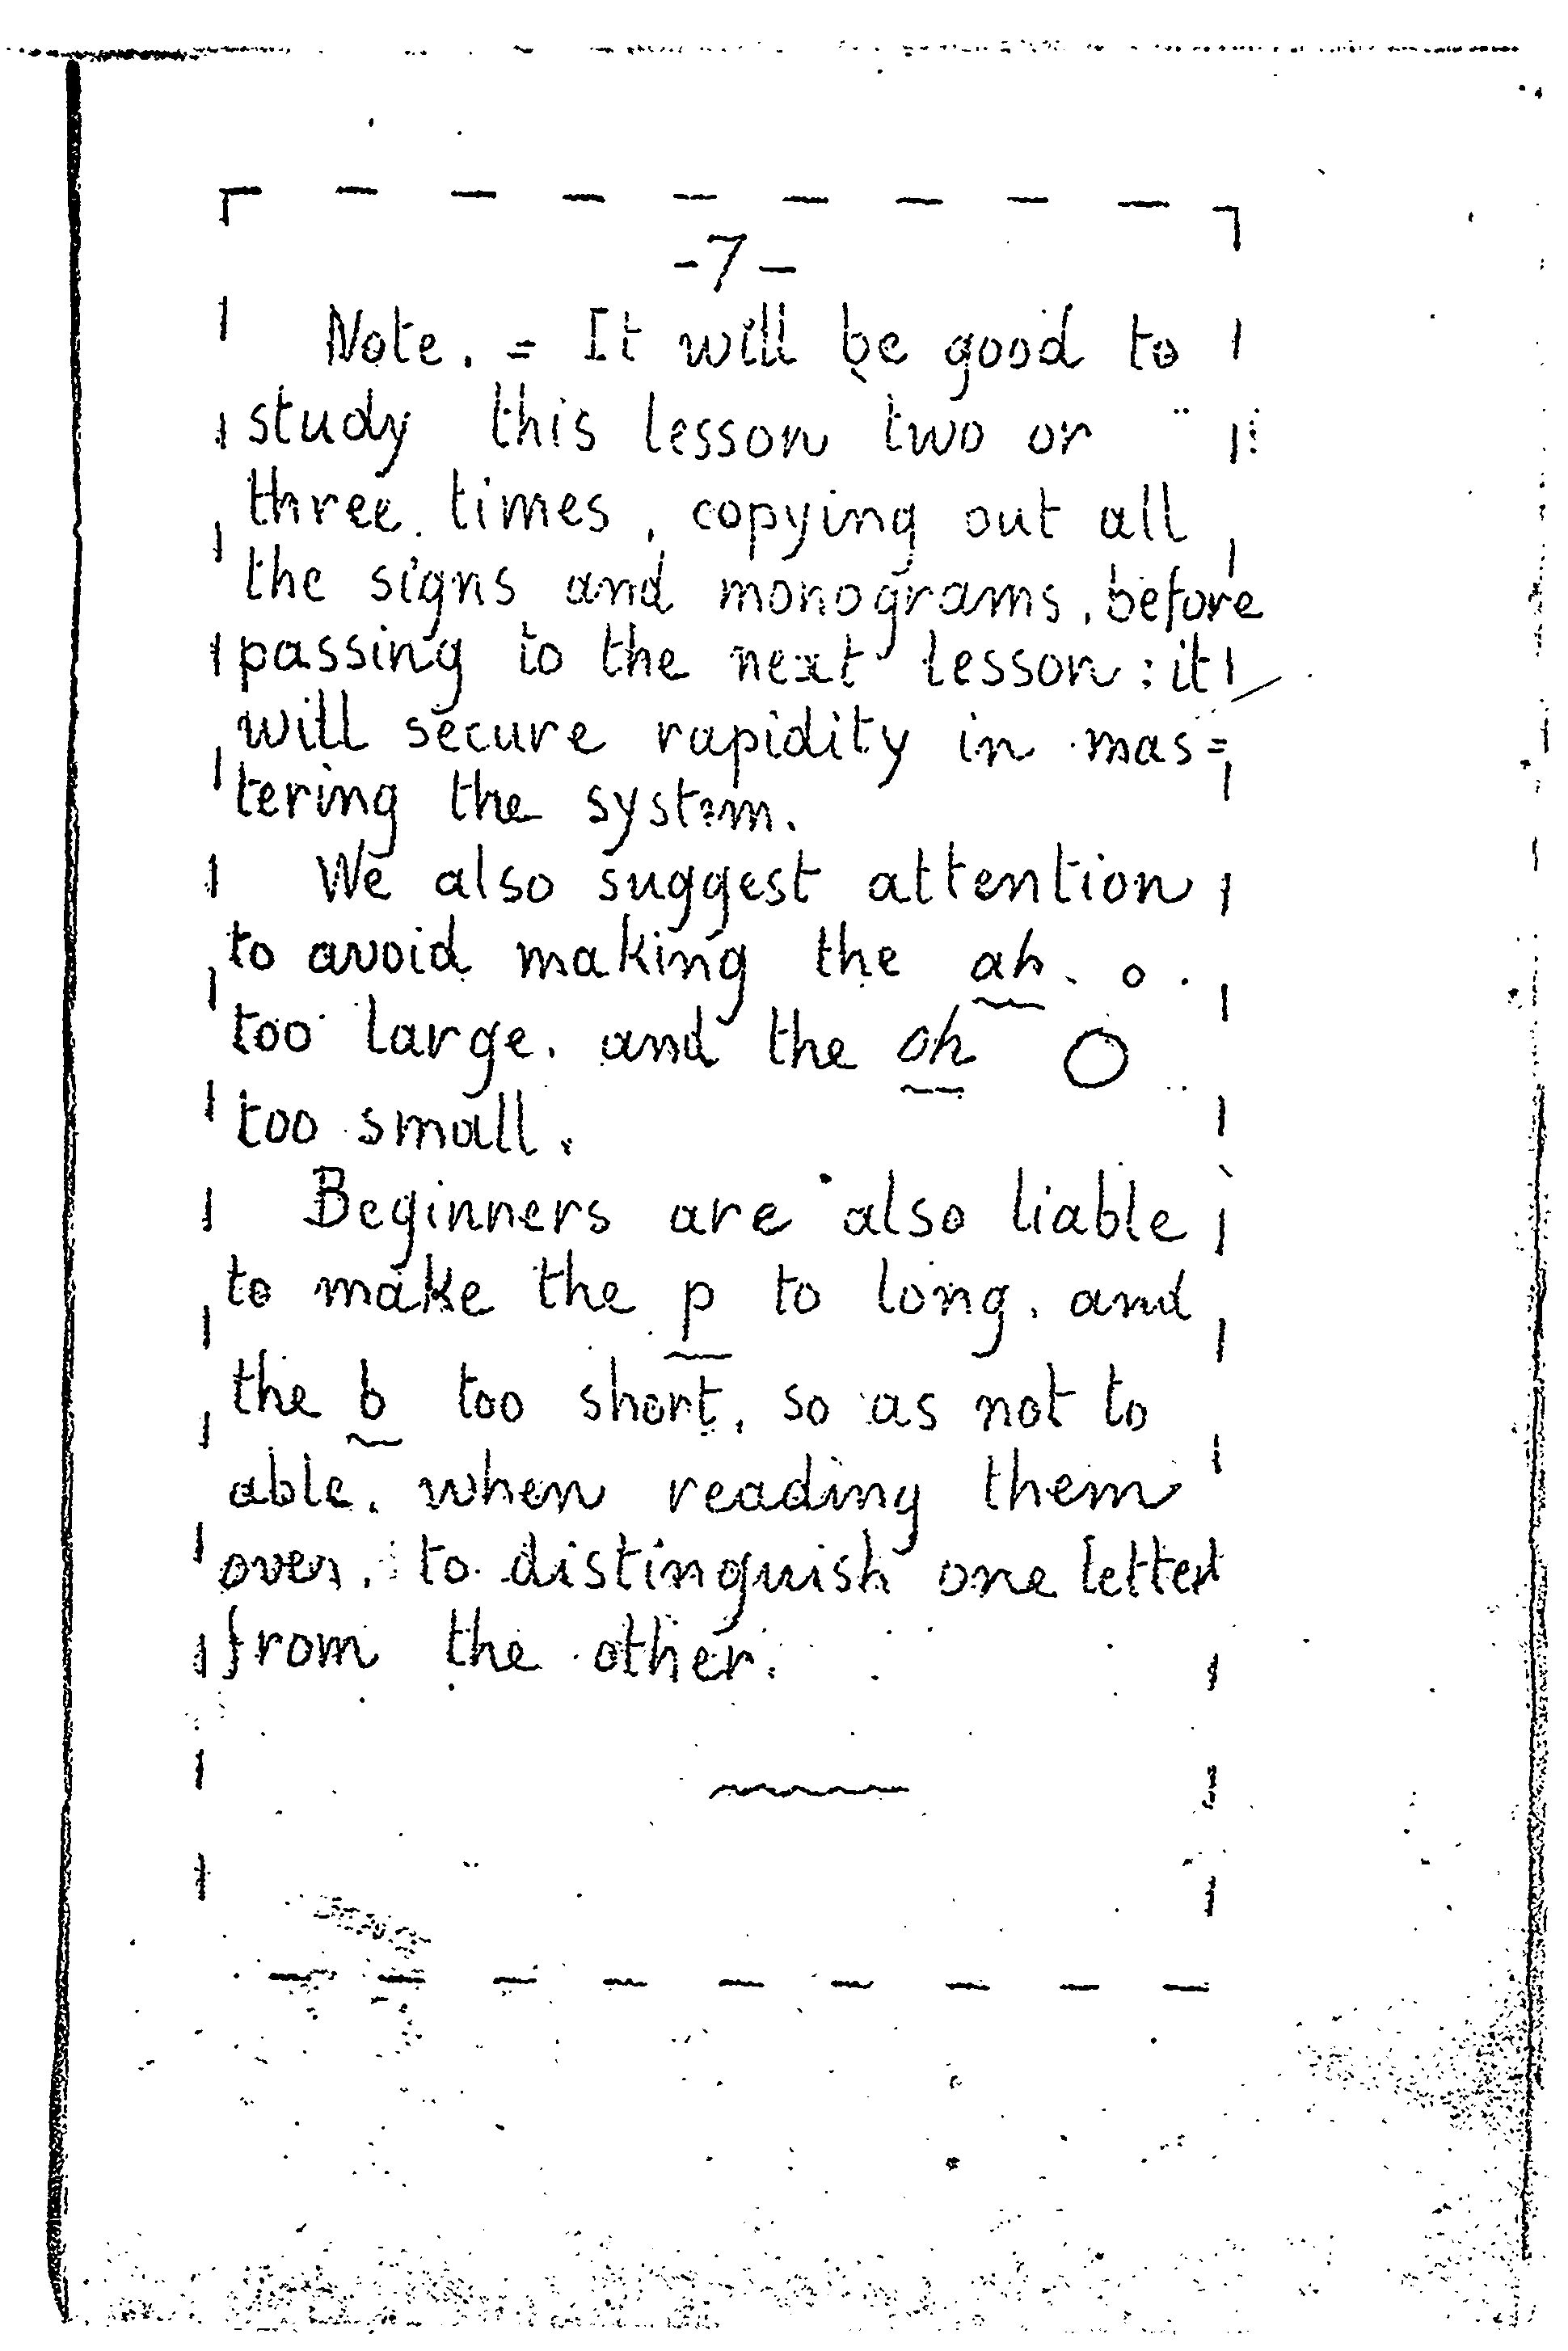 -7-
Note. = It will be good to
study this lesson two or
three times, copying out all
the signs and monograms, before
passing to the next lesson : it
will secure rapidity in mas=
tering the system.
We also suggest attention
to avoid making the ah. o.
too large. and the oh O
too small.
Beginners are also liable
to make the p to long. and
the b too short, so as not to
able. when reading them
over, to distinguish one letter
from the other.